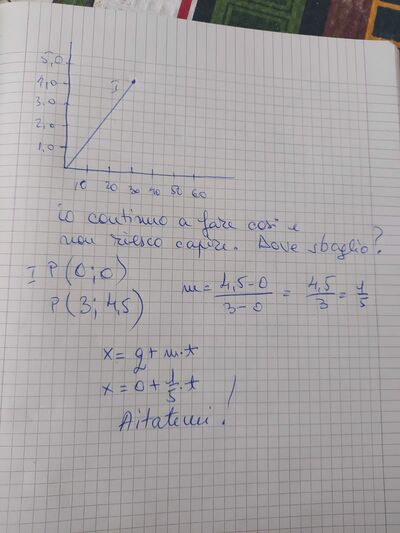 5,0
4,0
3,0
2,0
1,0
I
10 20 30 40 50 60
io continuo a fare così e
non riesco capire. Dove sbaglio?
I P(0;0)
P(3; 4,5)
m= 4,5-0 / 3-0 = 4,5 / 3 = 1 / 5
x= q+ m·t
x= 0+ 1/5 ·t
Aitatemi!